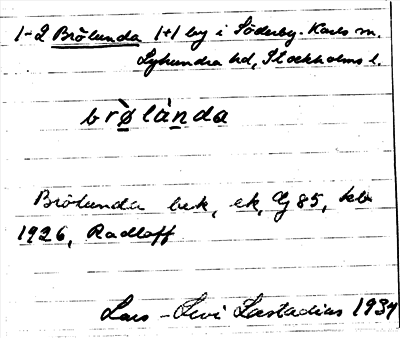 1-2 Brölunda 1+1 by i Söderby-Karls sn.
Lyhundra hd, Stockholms l.
brø̀lànda
Brölunda bek, ek, Gj 85, kb
1926, Radloff
Lars-Levi Læstadius 1934